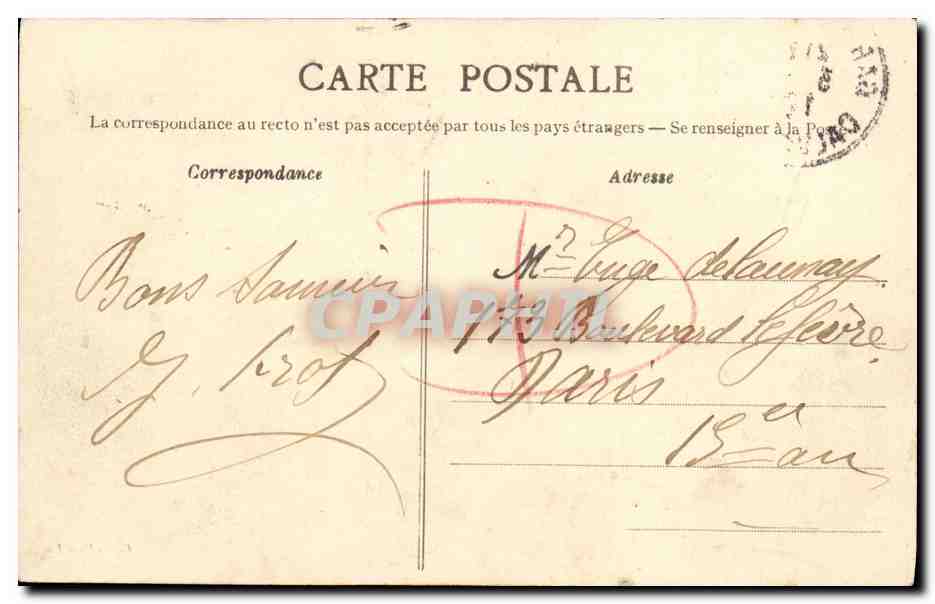 CARTE POSTALE
La correspondance au recto n'est pas acceptée par tous les pays étrangers — Se renseigner à la Poste
Correspondance
Adresse
Bons
Mr Euge delaunay
173 Boulevard Lefèvre
Paris
15 arr
CPAPHIL